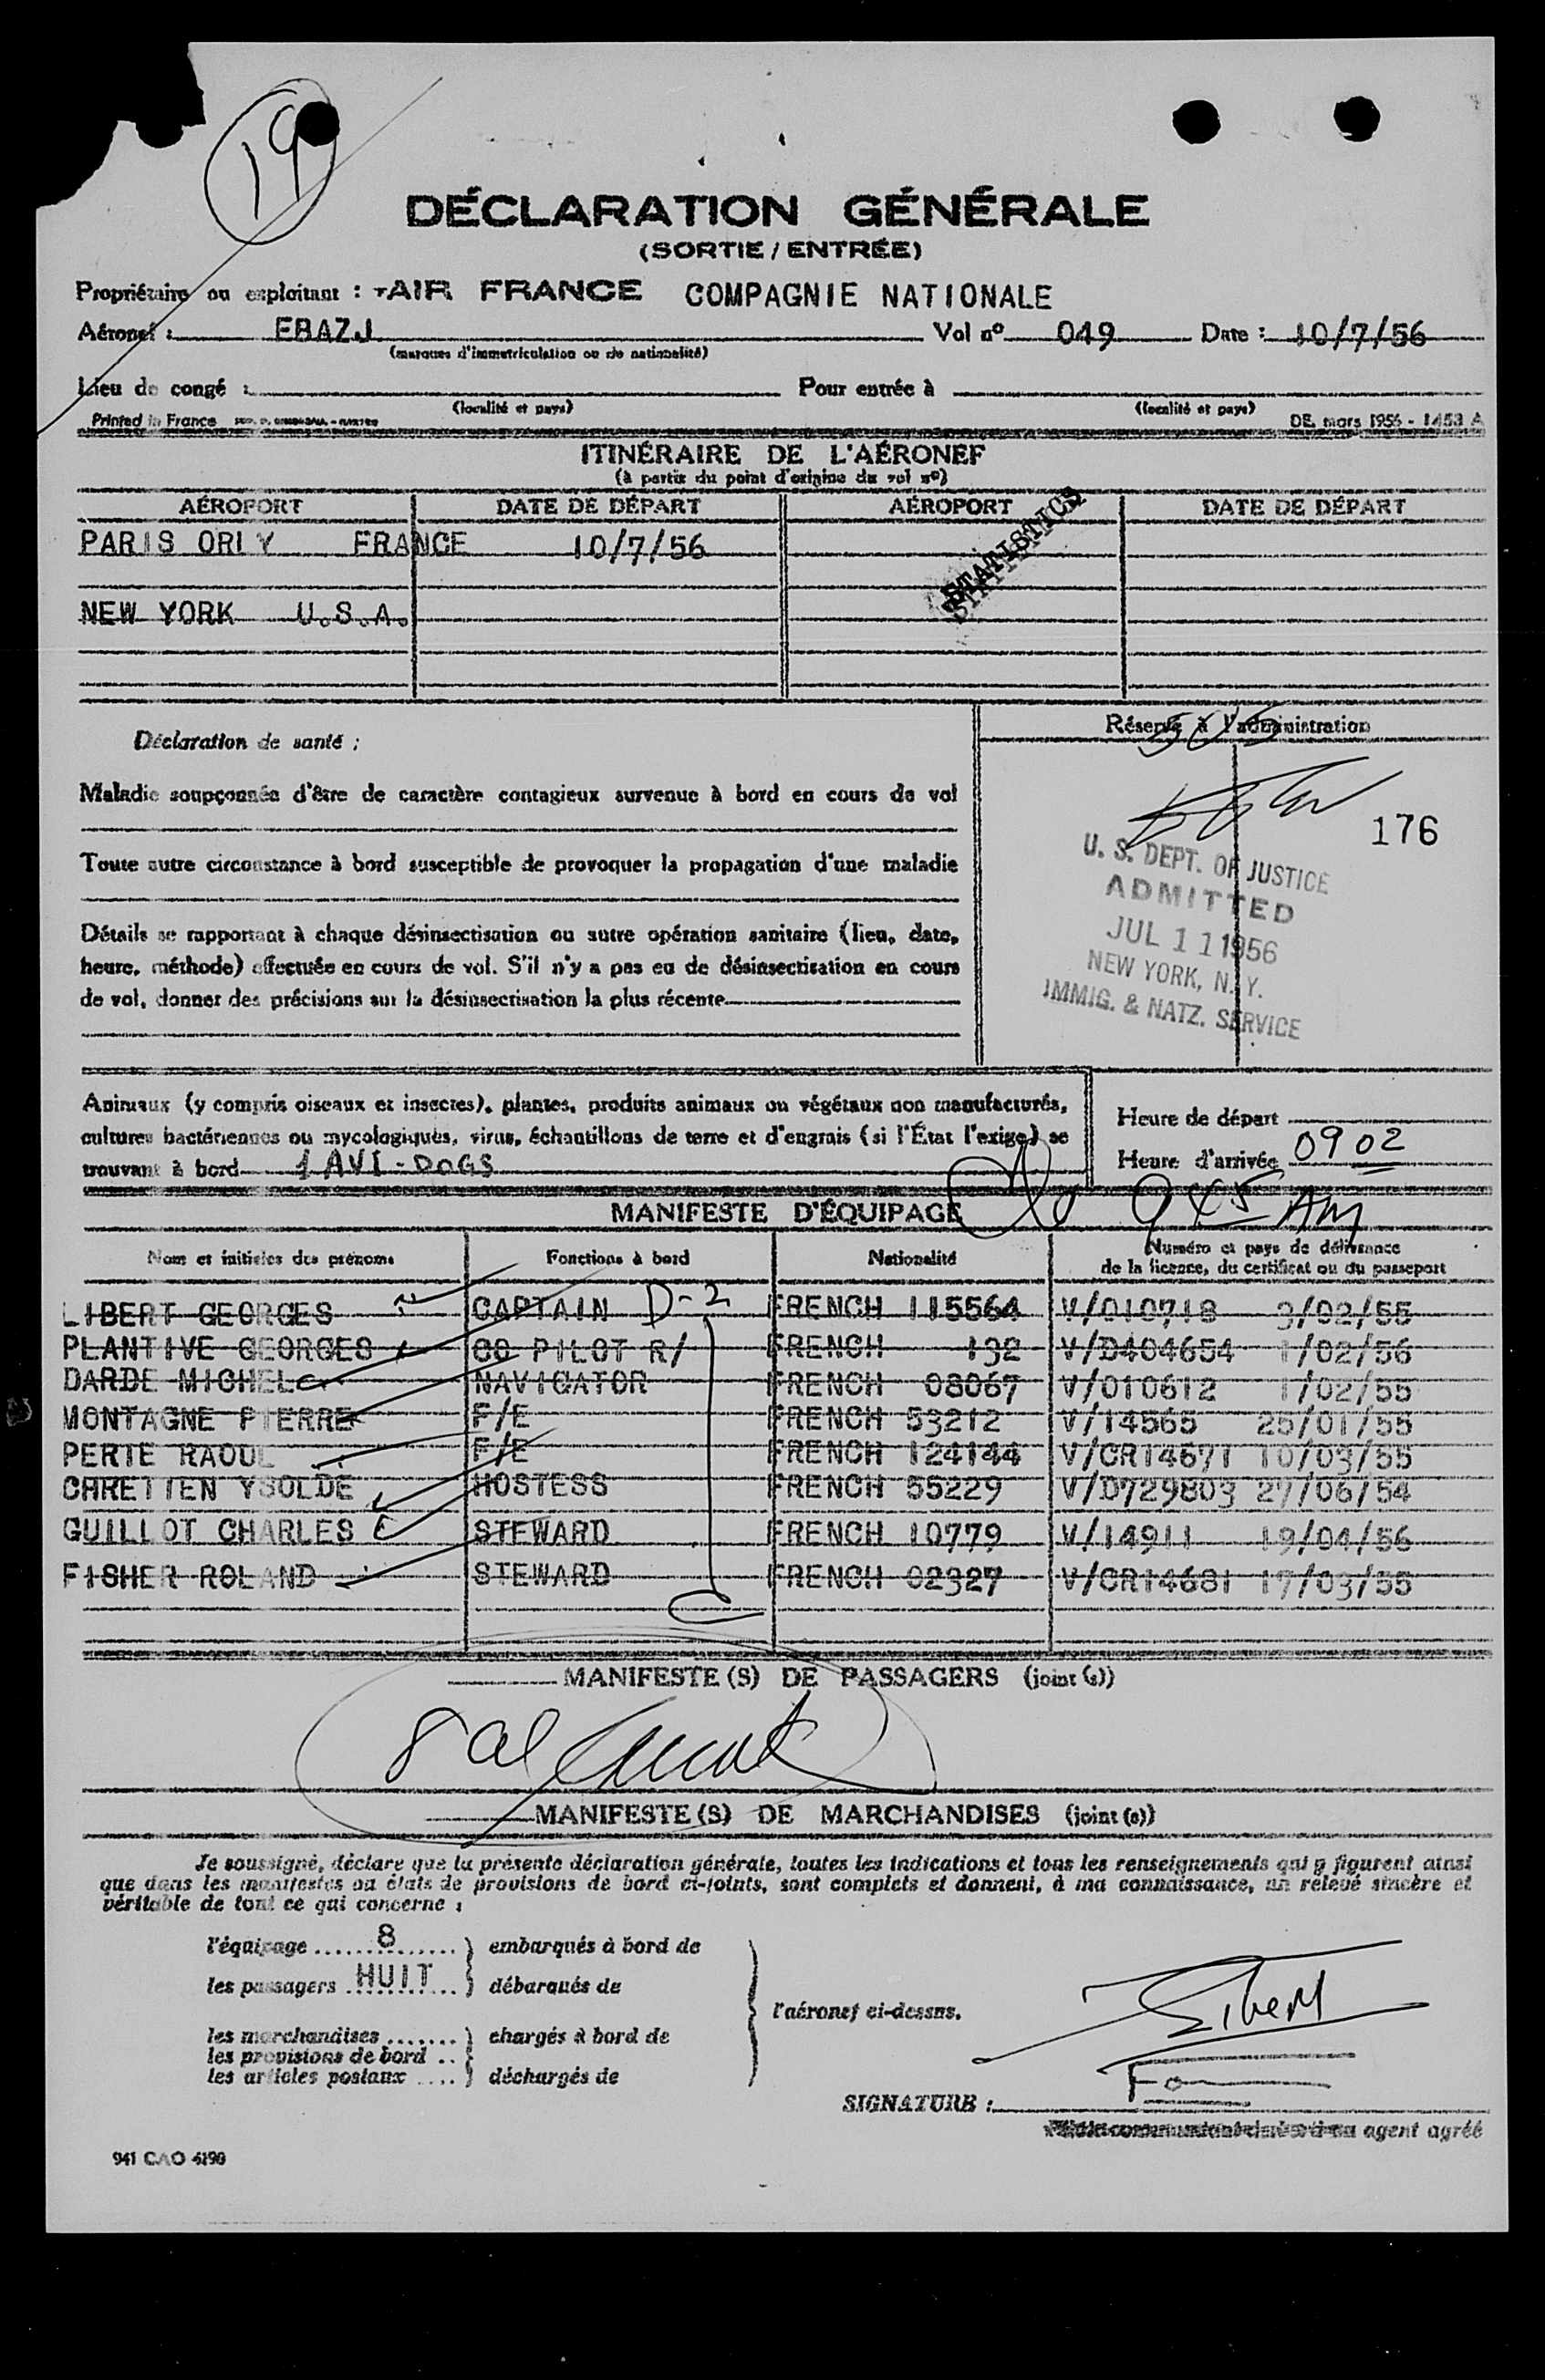 19
DÉCLARATION GÉNÉRALE
(SORTIE / ENTRÉE)
Propriétaire ou exploitant : AIR FRANCE COMPAGNIE NATIONALE
Aéronef : FBAZJ Vol nº 049 Date : 10/7/56
(marques d'immatriculation ou de nationalité)
Lieu de congé : Pour entrée à
(localité et pays) (localité et pays)
Printed in France DE. mars 1956 - 1453 A
ITINÉRAIRE DE L'AÉRONEF
(à partir du point d'origine du vol nº)
AÉROPORT DATE DE DÉPART AÉROPORT DATE DE DÉPART
PARIS ORLY FRANCE 10/7/56
STATISTICS
NEW YORK U.S.A.
Déclaration de santé :
Réservé à l'administration
Maladie soupçonnée d'être de caractère contagieux survenue à bord en cours de vol
176
Toute autre circonstance à bord susceptible de provoquer la propagation d'une maladie
U. S. DEPT. OF JUSTICE
ADMITTED
JUL 11 1956
NEW YORK, N. Y.
IMMIG. & NATZ. SERVICE
Détails se rapportant à chaque désinsectisation ou autre opération sanitaire (lieu, date,
heure, méthode) effectuée en cours de vol. S'il n'y a pas eu de désinsectisation en cours
de vol, donner des précisions sur la désinsectisation la plus récente
Animaux (y compris oiseaux et insectes), plantes, produits animaux ou végétaux non manufacturés,
cultures bactériennes ou mycologiques, virus, échantillons de terre et d'engrais (si l'État l'exige) se
trouvant à bord 1 AVI - DOGS
Heure de départ
Heure d'arrivée 0902
945 AM
MANIFESTE D'ÉQUIPAGE
Nom et initiales des prénoms Fonctions à bord Nationalité Numéro et pays de délivrance
de la licence, du certificat ou du passeport
LIBERT GEORGES CAPTAIN D-2 FRENCH 115564 V/010718 3/02/55
PLANTIVE GEORGES CO PILOT R/ FRENCH 132 V/D404654 1/02/56
DARDE MICHEL NAVIGATOR FRENCH 08067 V/010612 1/02/55
MONTAGNE PIERRE F/E FRENCH 53212 V/14565 25/01/55
PERIE RAOUL F/E FRENCH 124144 V/CR14671 10/03/55
CHRETIEN YSOLDE HOSTESS FRENCH 55229 V/D729803 27/06/54
GUILLOT CHARLES STEWARD FRENCH 10779 V/14911 19/04/56
FISHER ROLAND STEWARD FRENCH 02327 V/CR14681 17/03/55
MANIFESTE (S) DE PASSAGERS (joint (s))
8
MANIFESTE (S) DE MARCHANDISES (joint (s))
Je soussigné, déclare que la présente déclaration générale, toutes les indications et tous les renseignements qui y figurent ainsi
que dans les manifestes ou états de provisions de bord ci-joints, sont complets et donnent, à ma connaissance, un relevé sincère et
véritable de tout ce qui concerne :
l'équipage 8 embarqués à bord de
les passagers HUIT débarqués de
l'aéronef ci-dessus.
les marchandises chargés à bord de
les provisions de bord
les articles postaux déchargés de
Libert
SIGNATURE :
agent agréé
941 CAO 6190